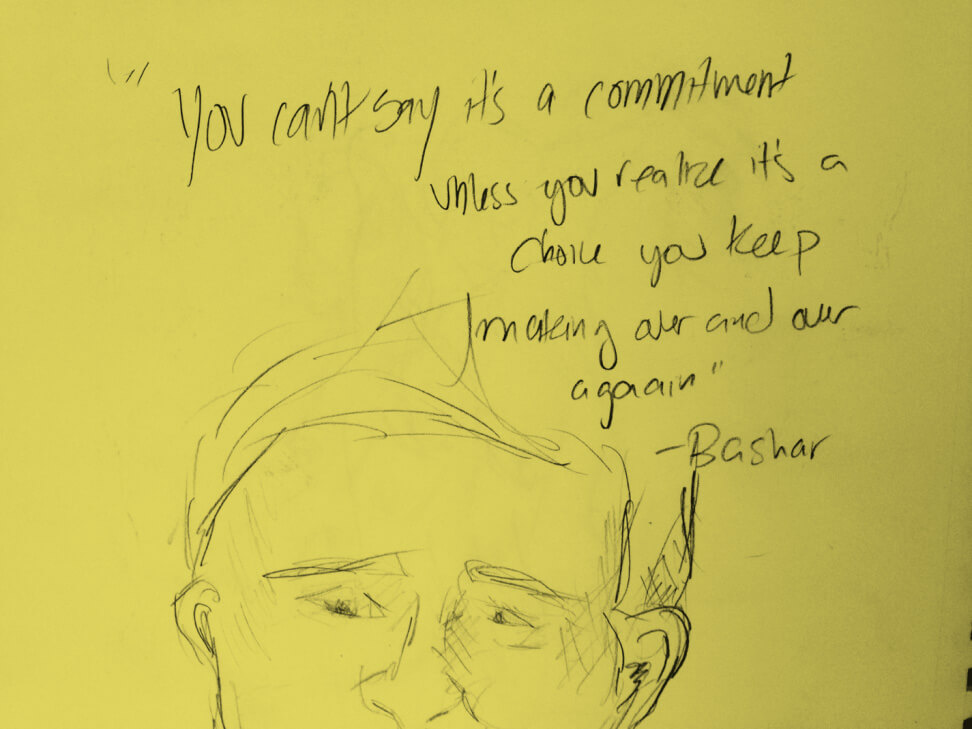 "You can't say it's a commitment
unless you realize it's a
choice you keep
making over and over
agaain"
-Bashar